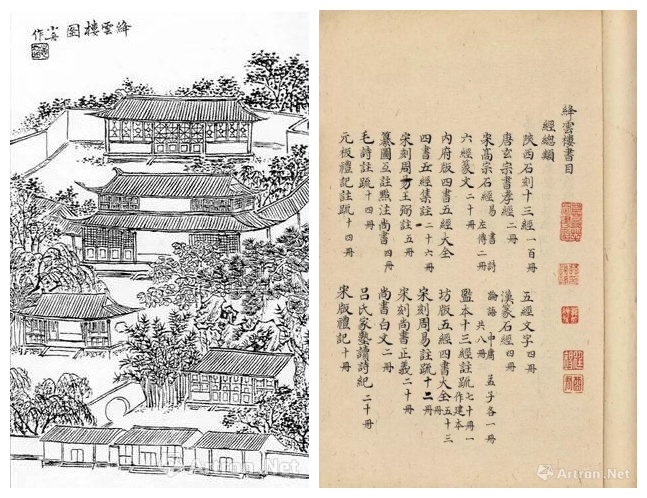 絳雲樓圖
作
Artron.Net
絳雲樓書目
經總類
陝西石刻十三經 一百冊 五經文字 四冊
唐玄宗書孝經 二冊 漢篆石經 四冊
宋高宗石經 易 書 詩 左傳 二冊 論語 中庸 孟子各一冊 共八冊
六經篆文 二十冊 監本十三經註疏 七十冊 一作建本
內府版四書五經大全 坊版五經四書大全 五十三冊
四書五經集註 二十六冊 宋刻周易註疏 十二冊
宋刻周易王弼註 五冊 宋刻尚書正義 二十冊
纂圖互註點注尚書 四冊 尚書白文 二冊
毛詩註疏 十四冊 呂氏家塾讀詩紀 二十冊
元板禮記註疏 十四冊 宋版禮記 十冊
Artron.Net